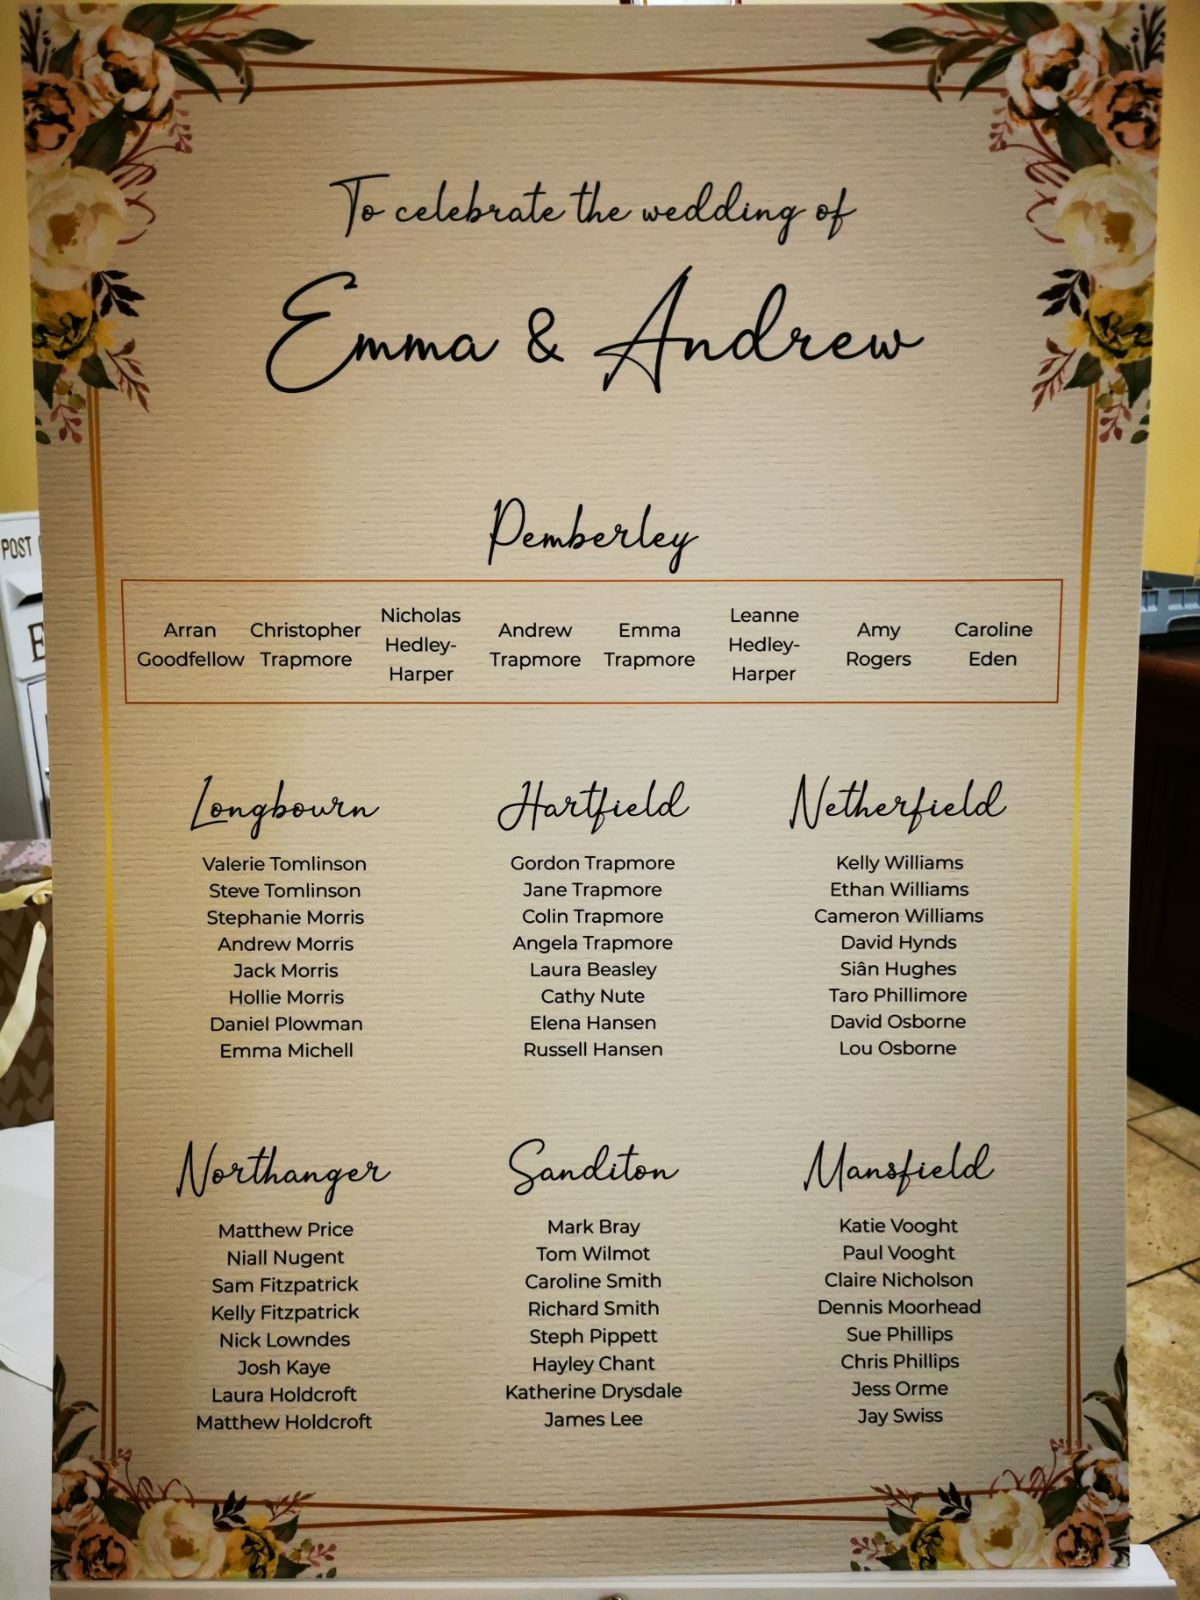 To celebrate the wedding of
Emma & Andrew
Pemberley
Arran Goodfellow
Christopher Trapmore
Nicholas Hedley-Harper
Andrew Trapmore
Emma Trapmore
Leanne Hedley-Harper
Amy Rogers
Caroline Eden
Longbourn
Valerie Tomlinson
Steve Tomlinson
Stephanie Morris
Andrew Morris
Jack Morris
Hollie Morris
Daniel Plowman
Emma Michell
Hartfield
Gordon Trapmore
Jane Trapmore
Colin Trapmore
Angela Trapmore
Laura Beasley
Cathy Nute
Elena Hansen
Russell Hansen
Netherfield
Kelly Williams
Ethan Williams
Cameron Williams
David Hynds
Siân Hughes
Taro Phillimore
David Osborne
Lou Osborne
Northanger
Matthew Price
Niall Nugent
Sam Fitzpatrick
Kelly Fitzpatrick
Nick Lowndes
Josh Kaye
Laura Holdcroft
Matthew Holdcroft
Sanditon
Mark Bray
Tom Wilmot
Caroline Smith
Richard Smith
Steph Pippett
Hayley Chant
Katherine Drysdale
James Lee
Mansfield
Katie Vooght
Paul Vooght
Claire Nicholson
Dennis Moorhead
Sue Phillips
Chris Phillips
Jess Orme
Jay Swiss
POST
E